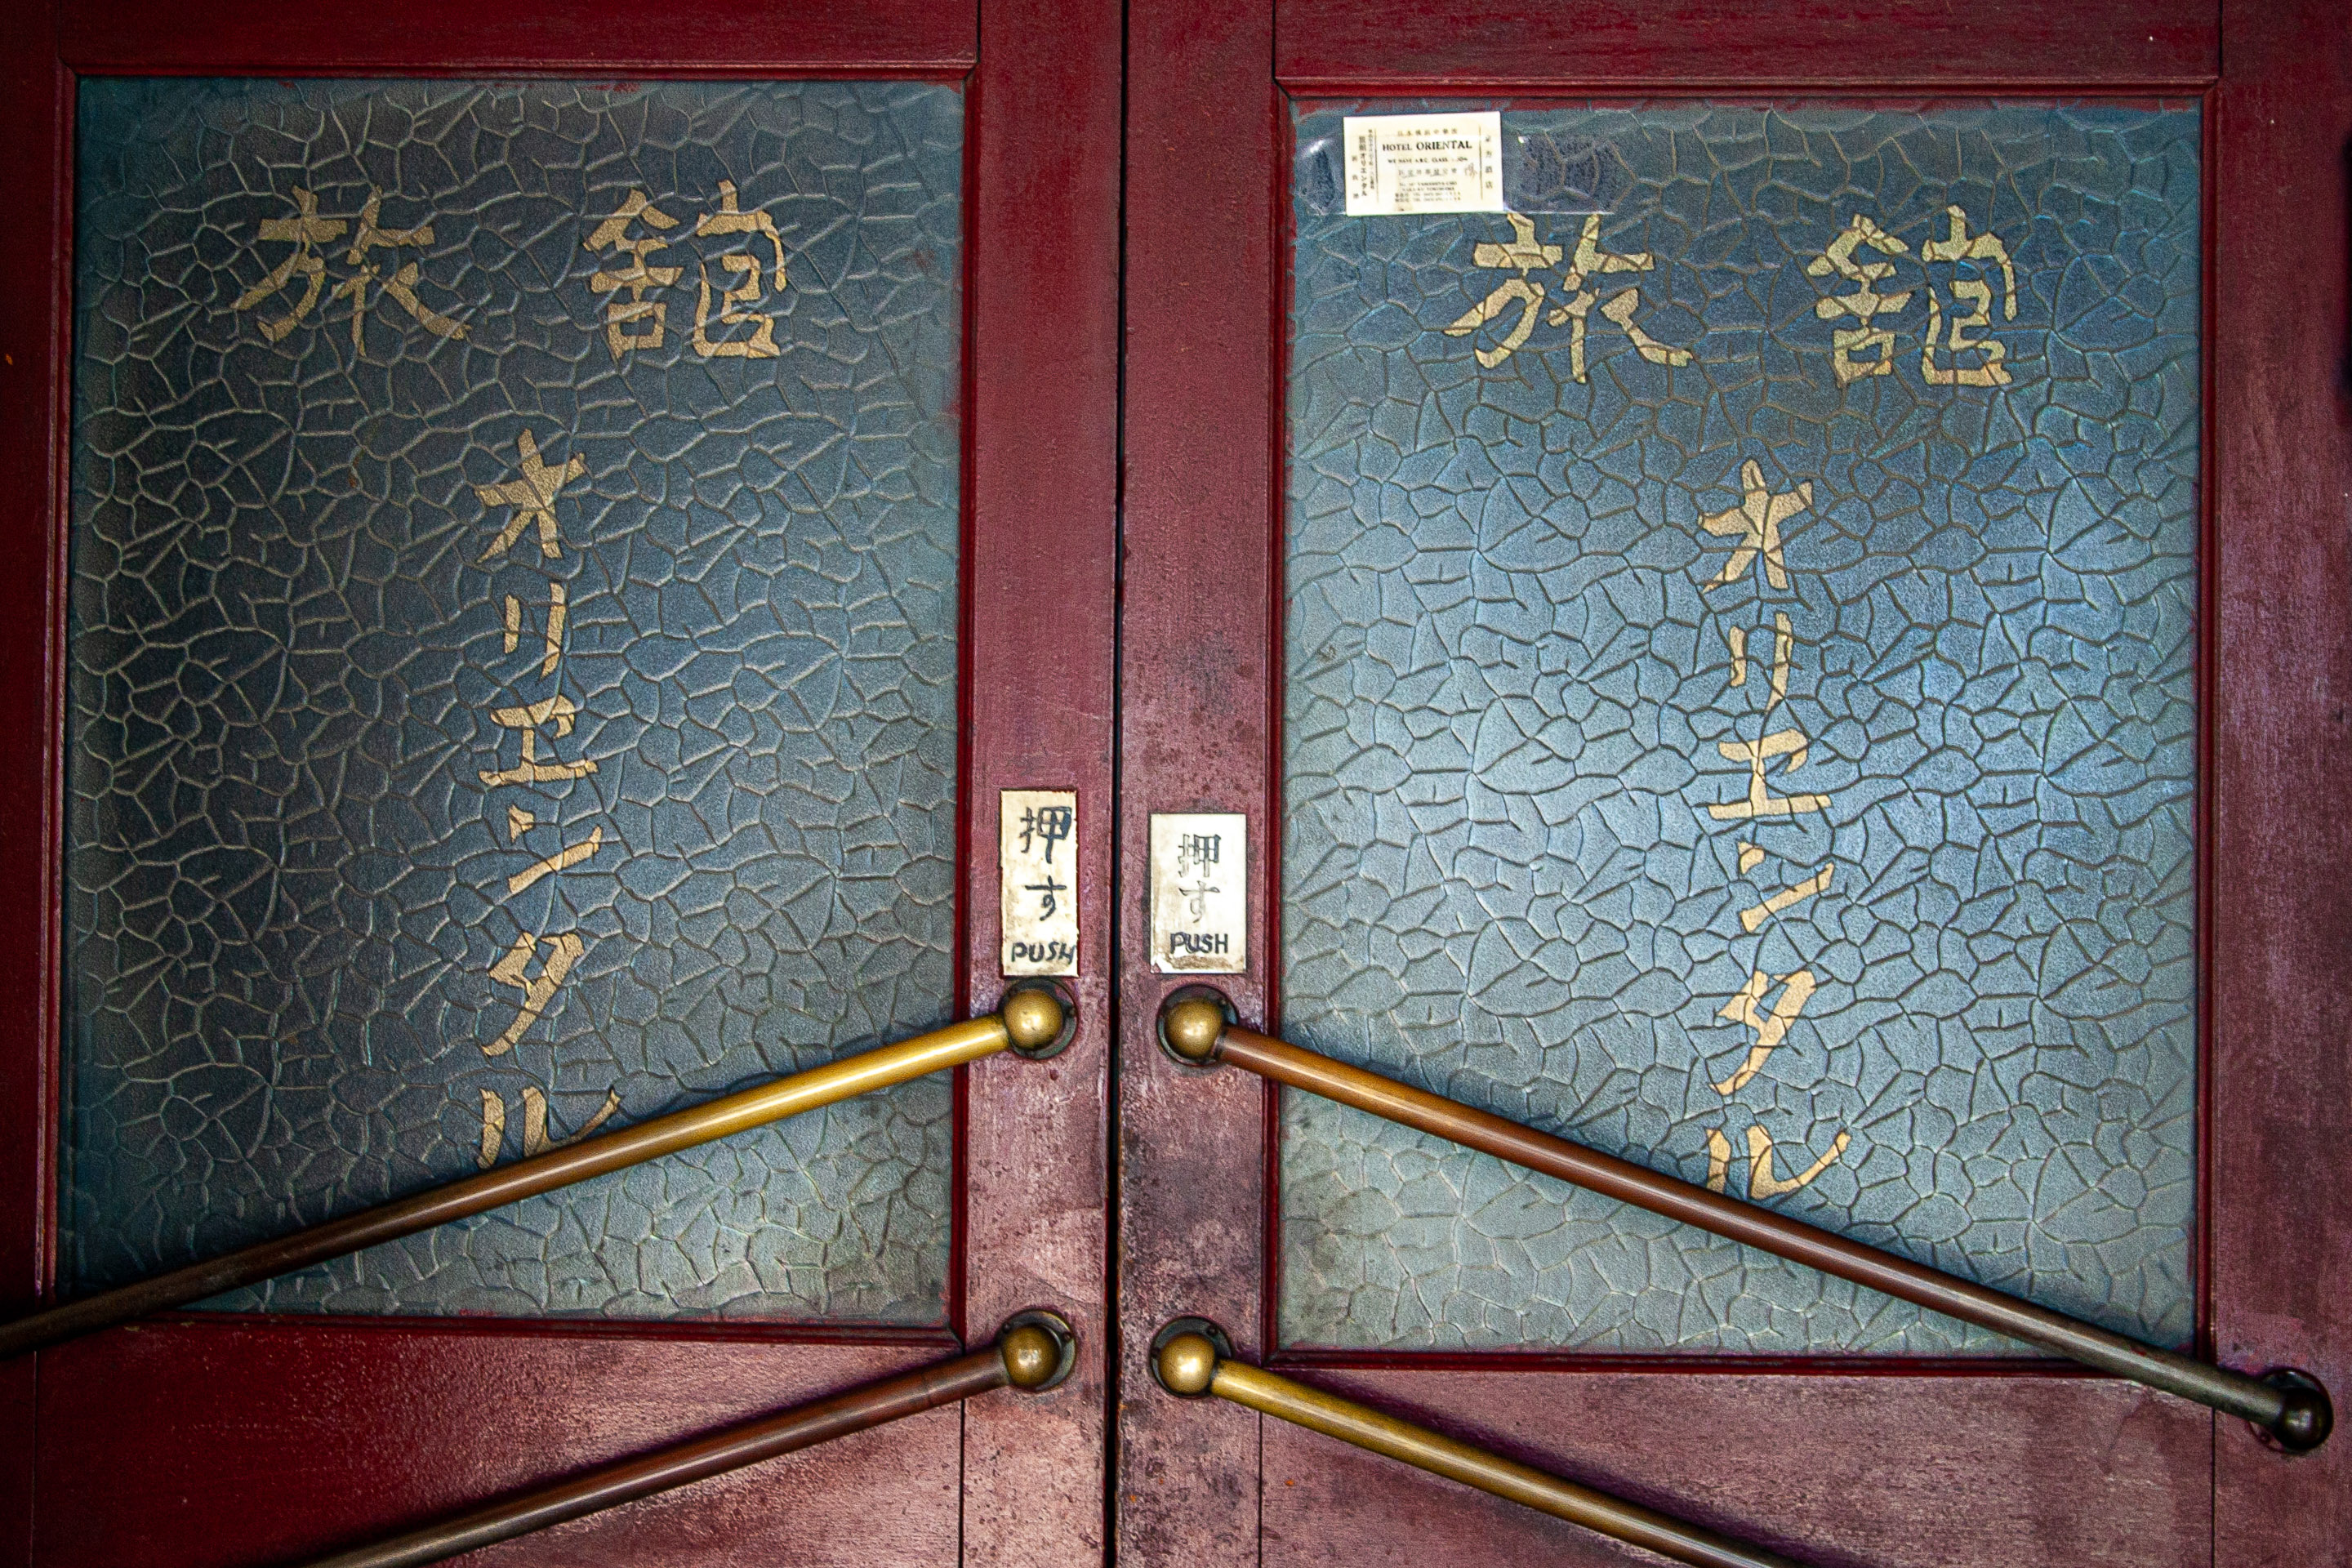 旅館
オリエンタル
押す
PUSH
押す
PUSH
HOTEL ORIENTAL
旅館
オリエンタル